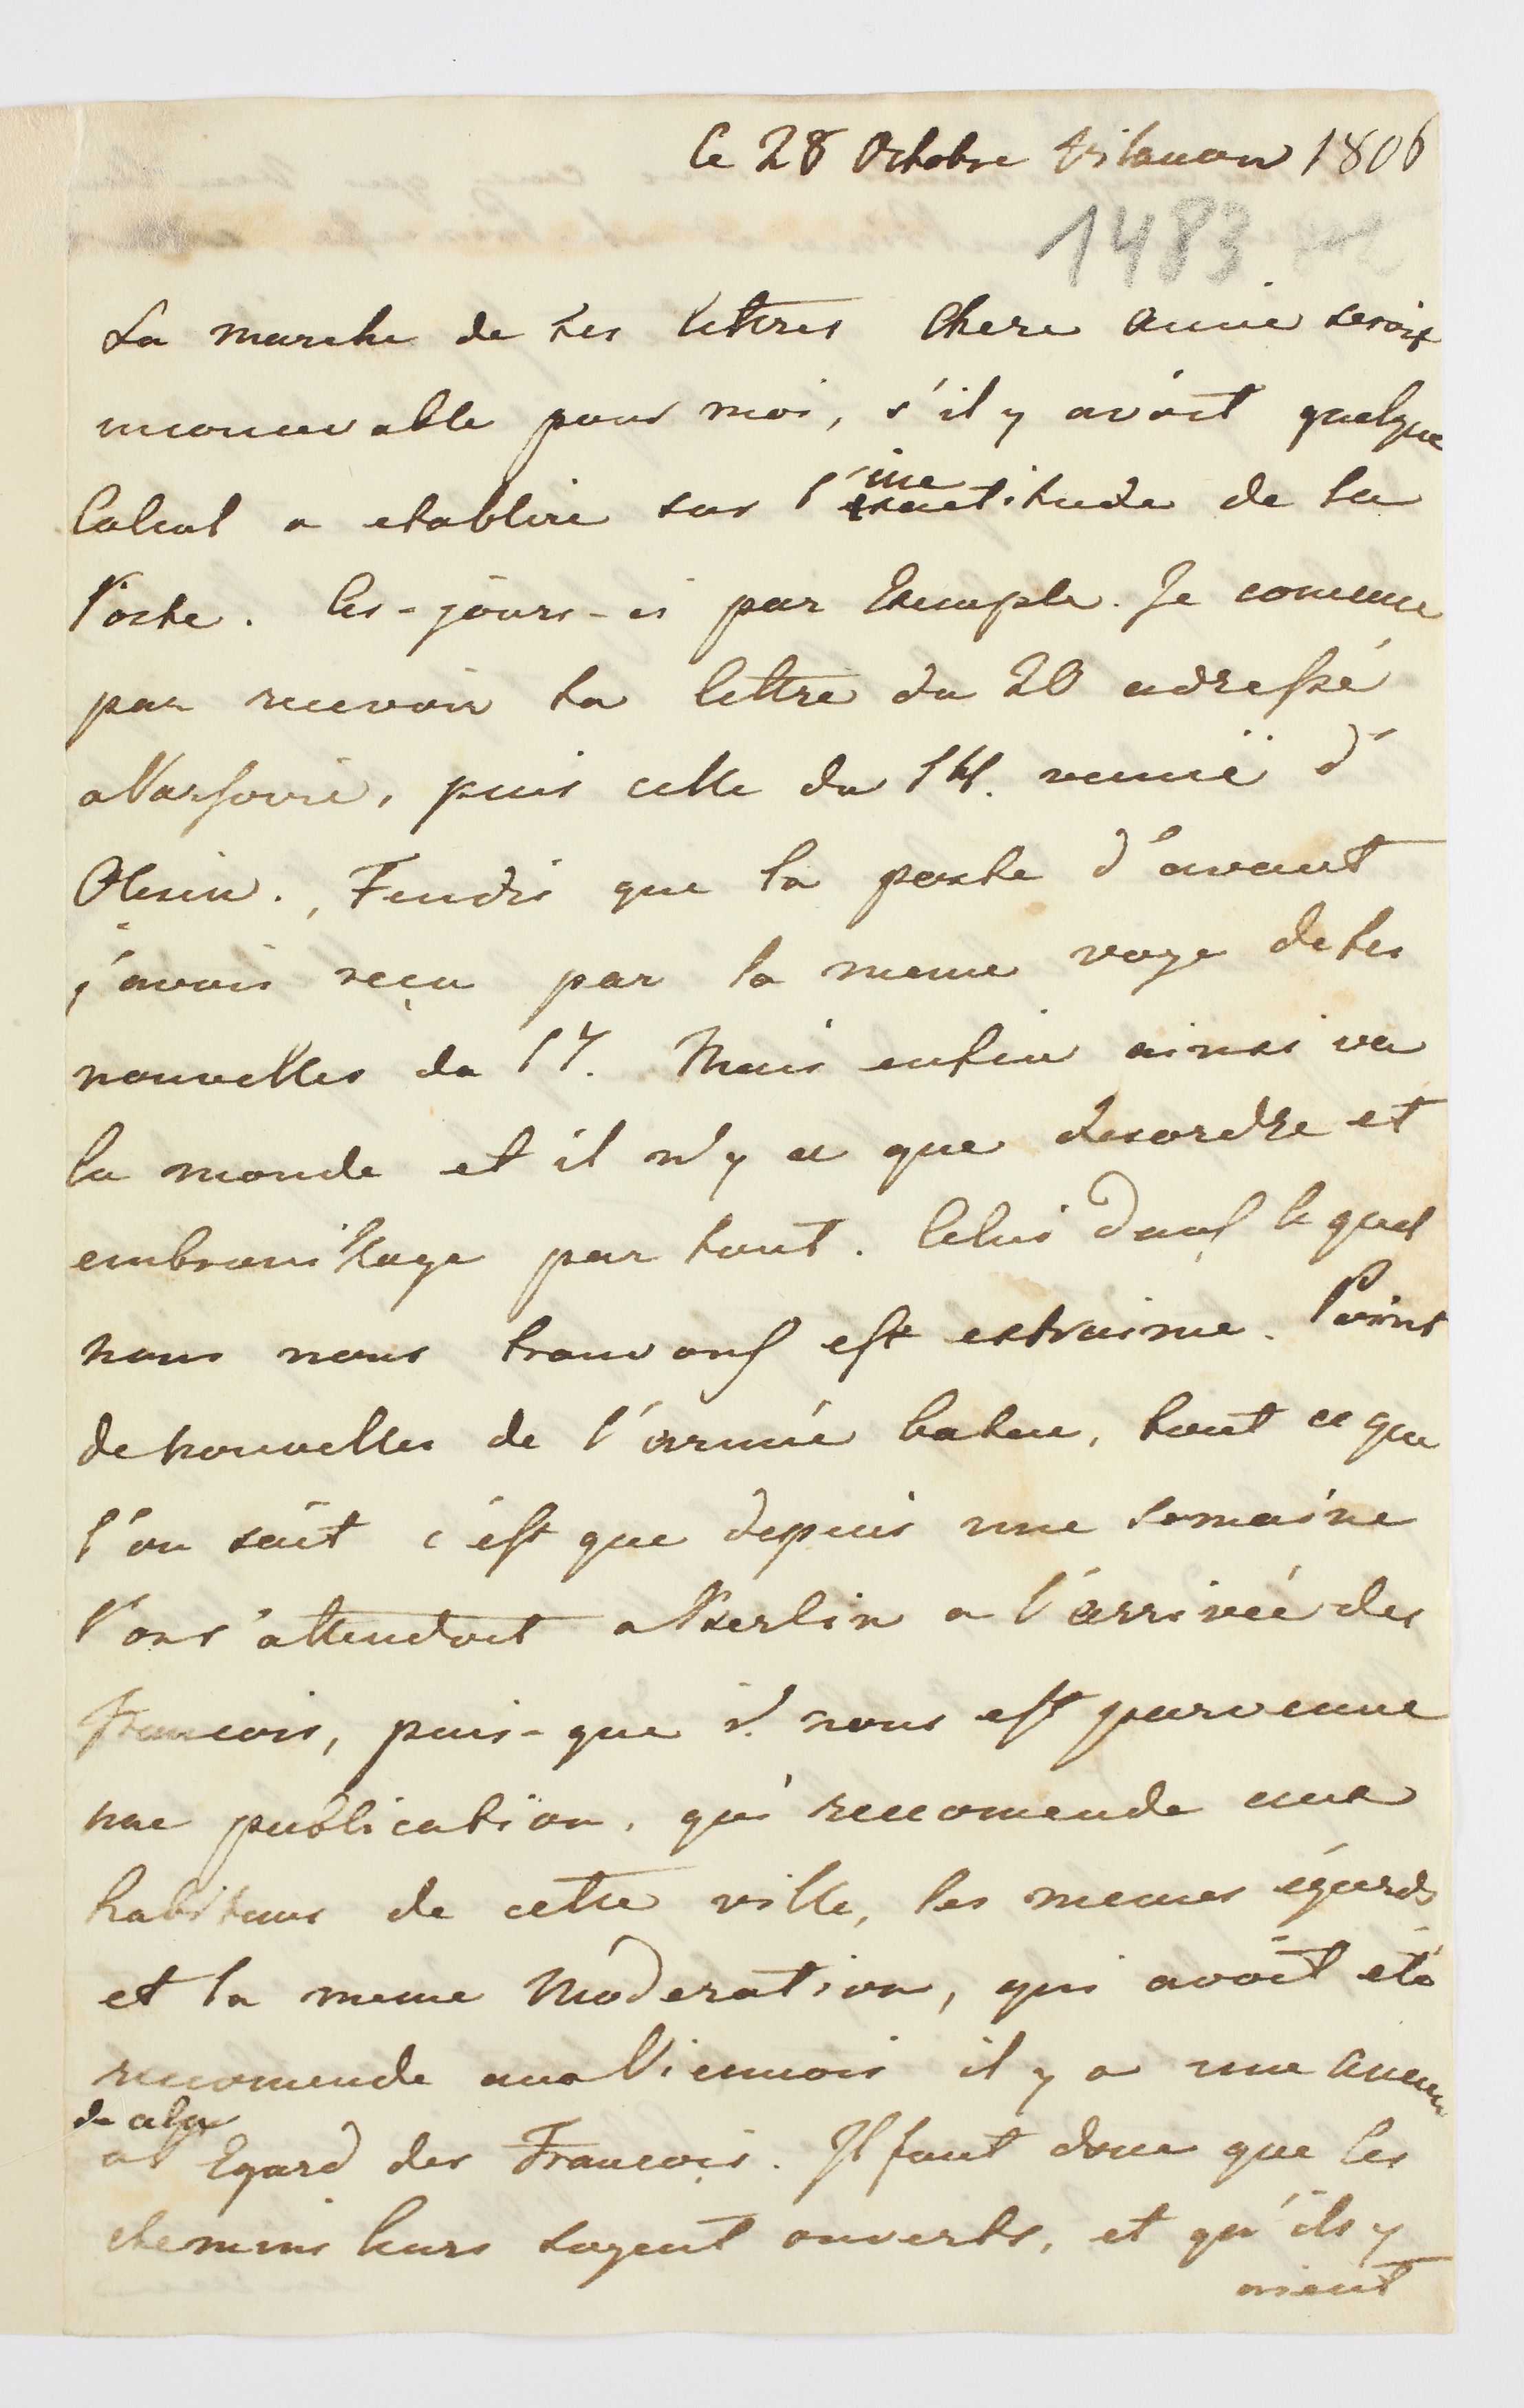 Ce 28 Octobre Vilanow 1806
1483
La marche de tes lettres Chere Amie seroit
inconcevable pour moi, s'il y avoit quelque
Calcul a etablire sur l'inexactitude de la
Poste. Ces-jours-ci par Exemple. Je comence
par recevoir ta lettre du 20 adressé
a Varsovie, puis celle du 14. venuë d'
Olesin., Tendis que la poste d'avant
j'avois reçu par la meme voye de tes
nouvelles du 17. Mais enfin ainsi va
le monde et il n'y a que desordre et
embrouillage par tout. Celui dans le quel
nous nous trouvons est extraime. Point
de nouvelles de l'armée batue, tout ce que
l'on sait c'est que depuis une semaine
l'on s'attendoit a Berlin a l'arrivée des
François, puis-que il nous est parvenue
une publication, qui recomende aux
habitans de cette ville, les memes égards
et la meme Moderation, qui avoit eté
recomende aux Viennois il y a une année
de cela
al Egard des François. Il faut donc que les
chemins leurs soyent ouverts, et qu'ils y
aient